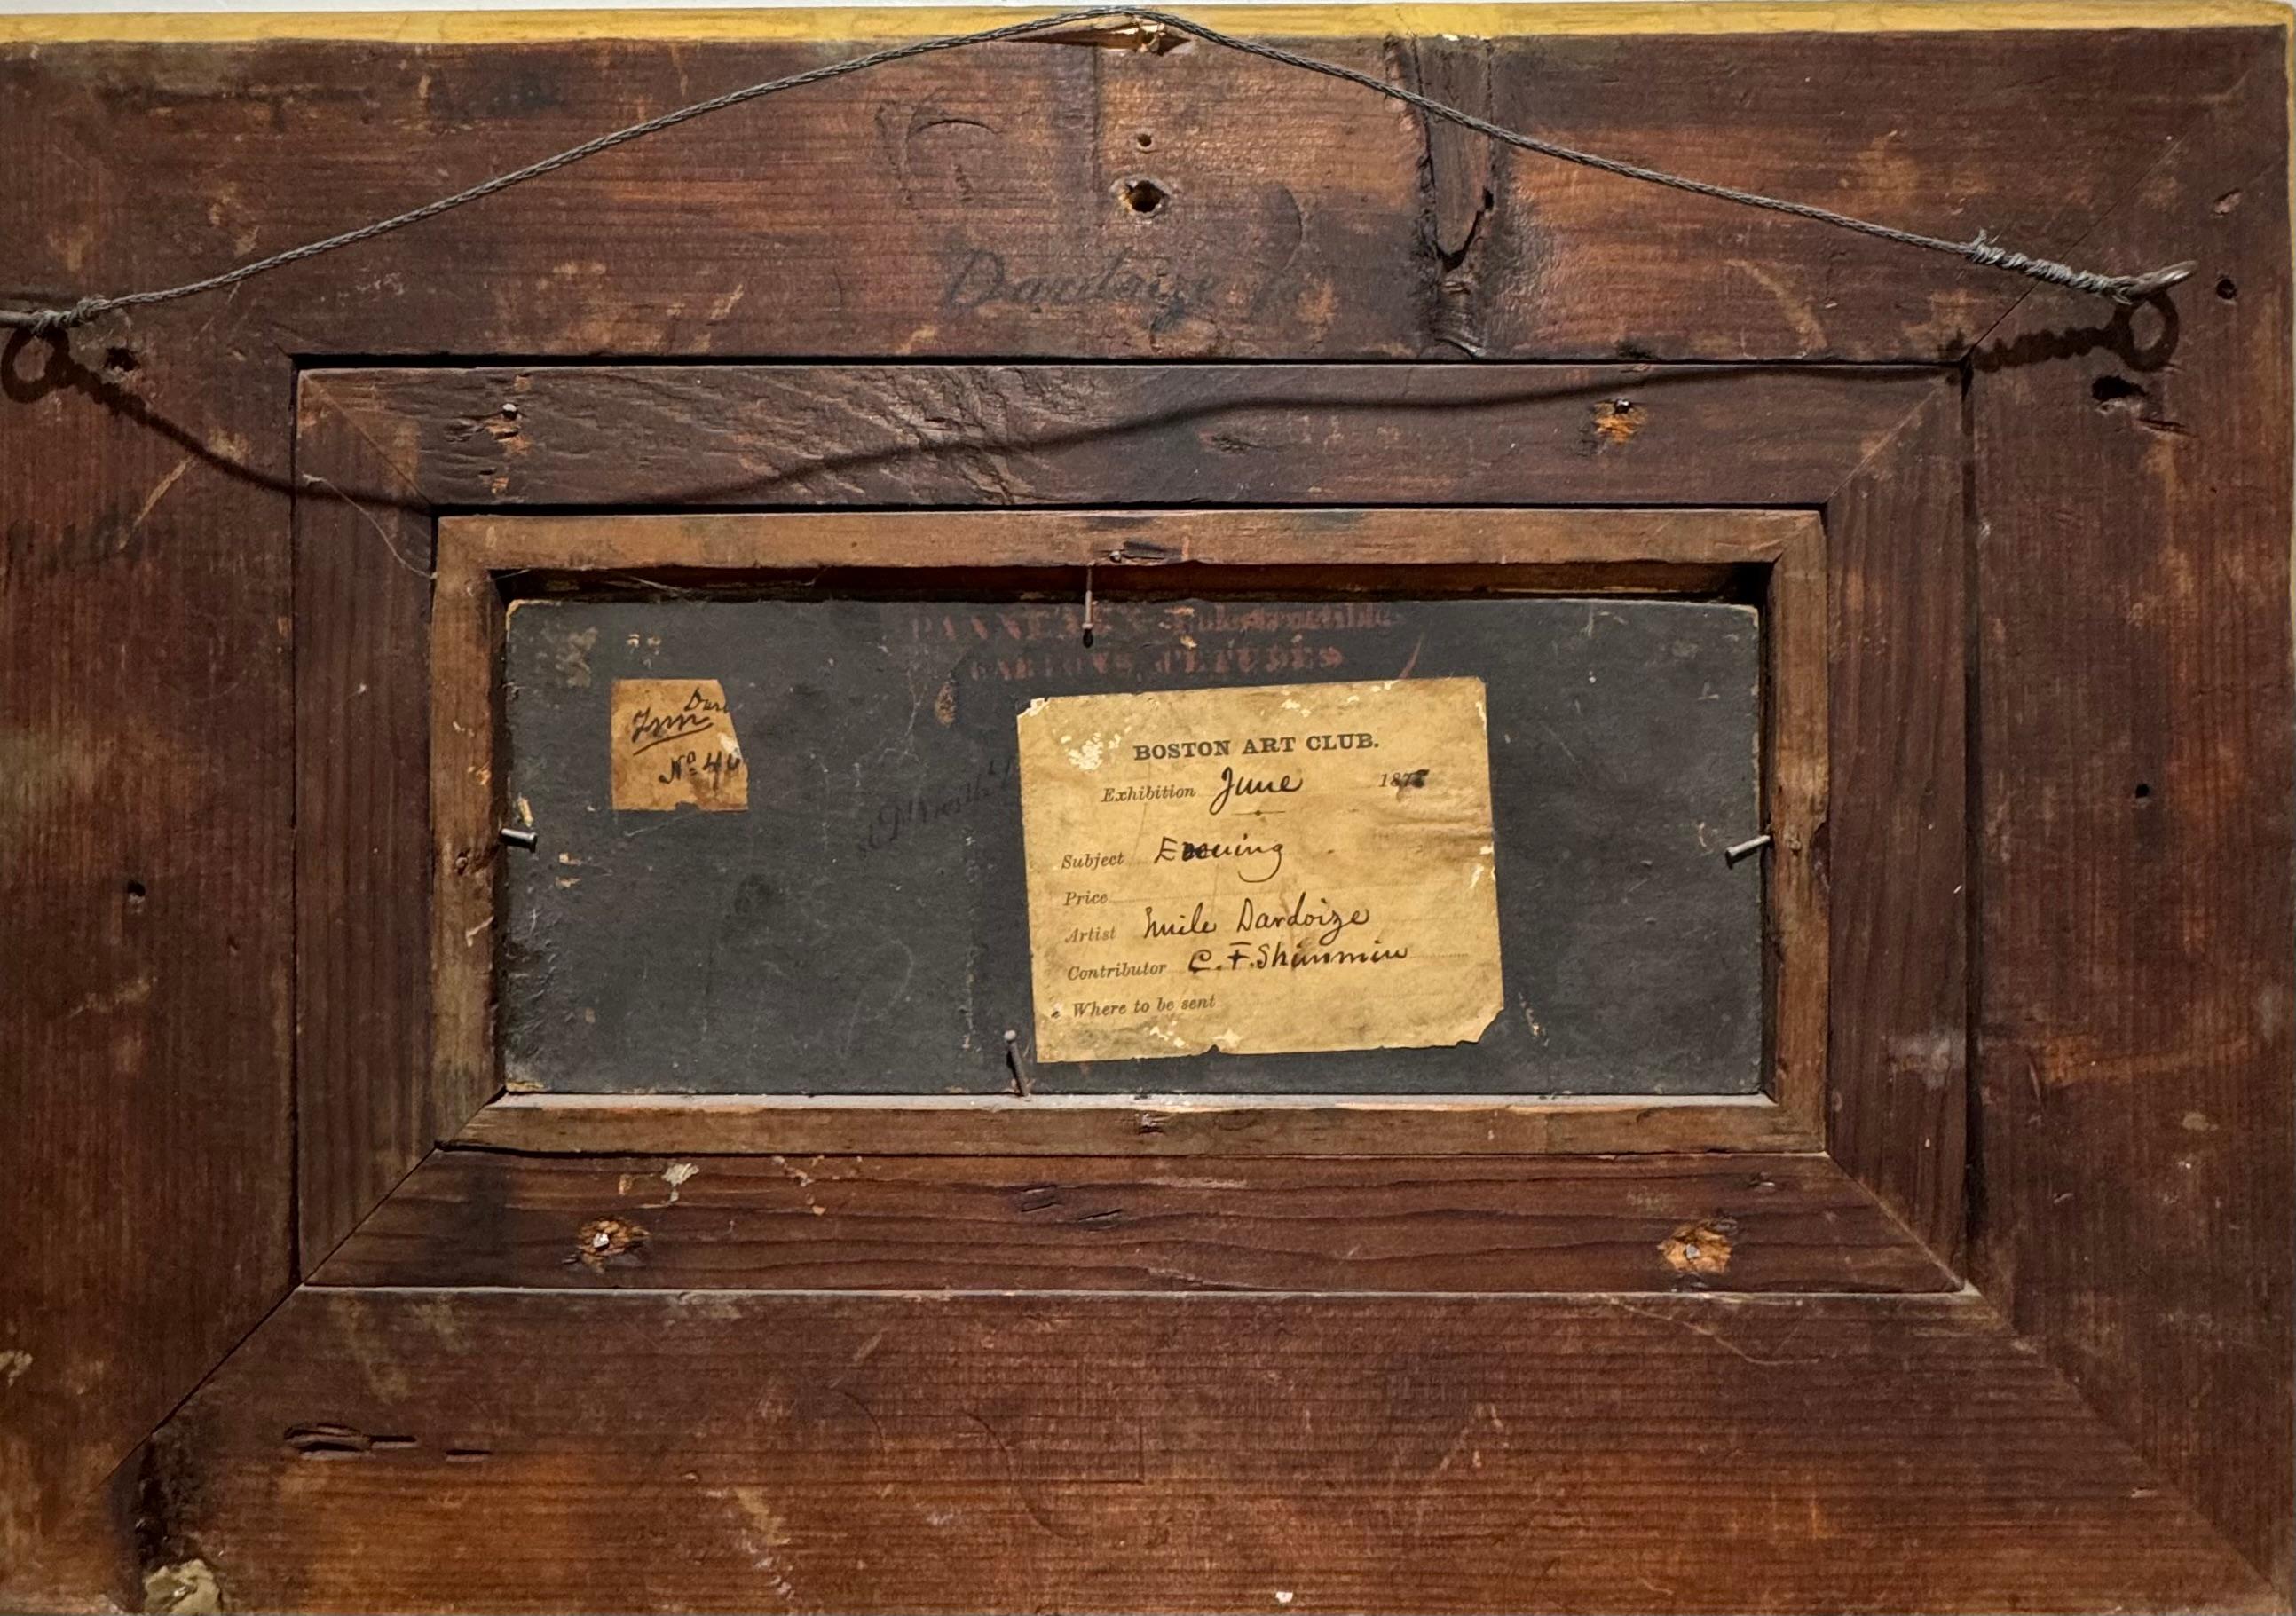 Dardoize
CARTONS, D'ETUDES
Nº 46
BOSTON ART CLUB.
Exhibition June 187
Subject Evening
Price
Artist Emile Dardoize
Contributor C. F. Shimmin
Where to be sent